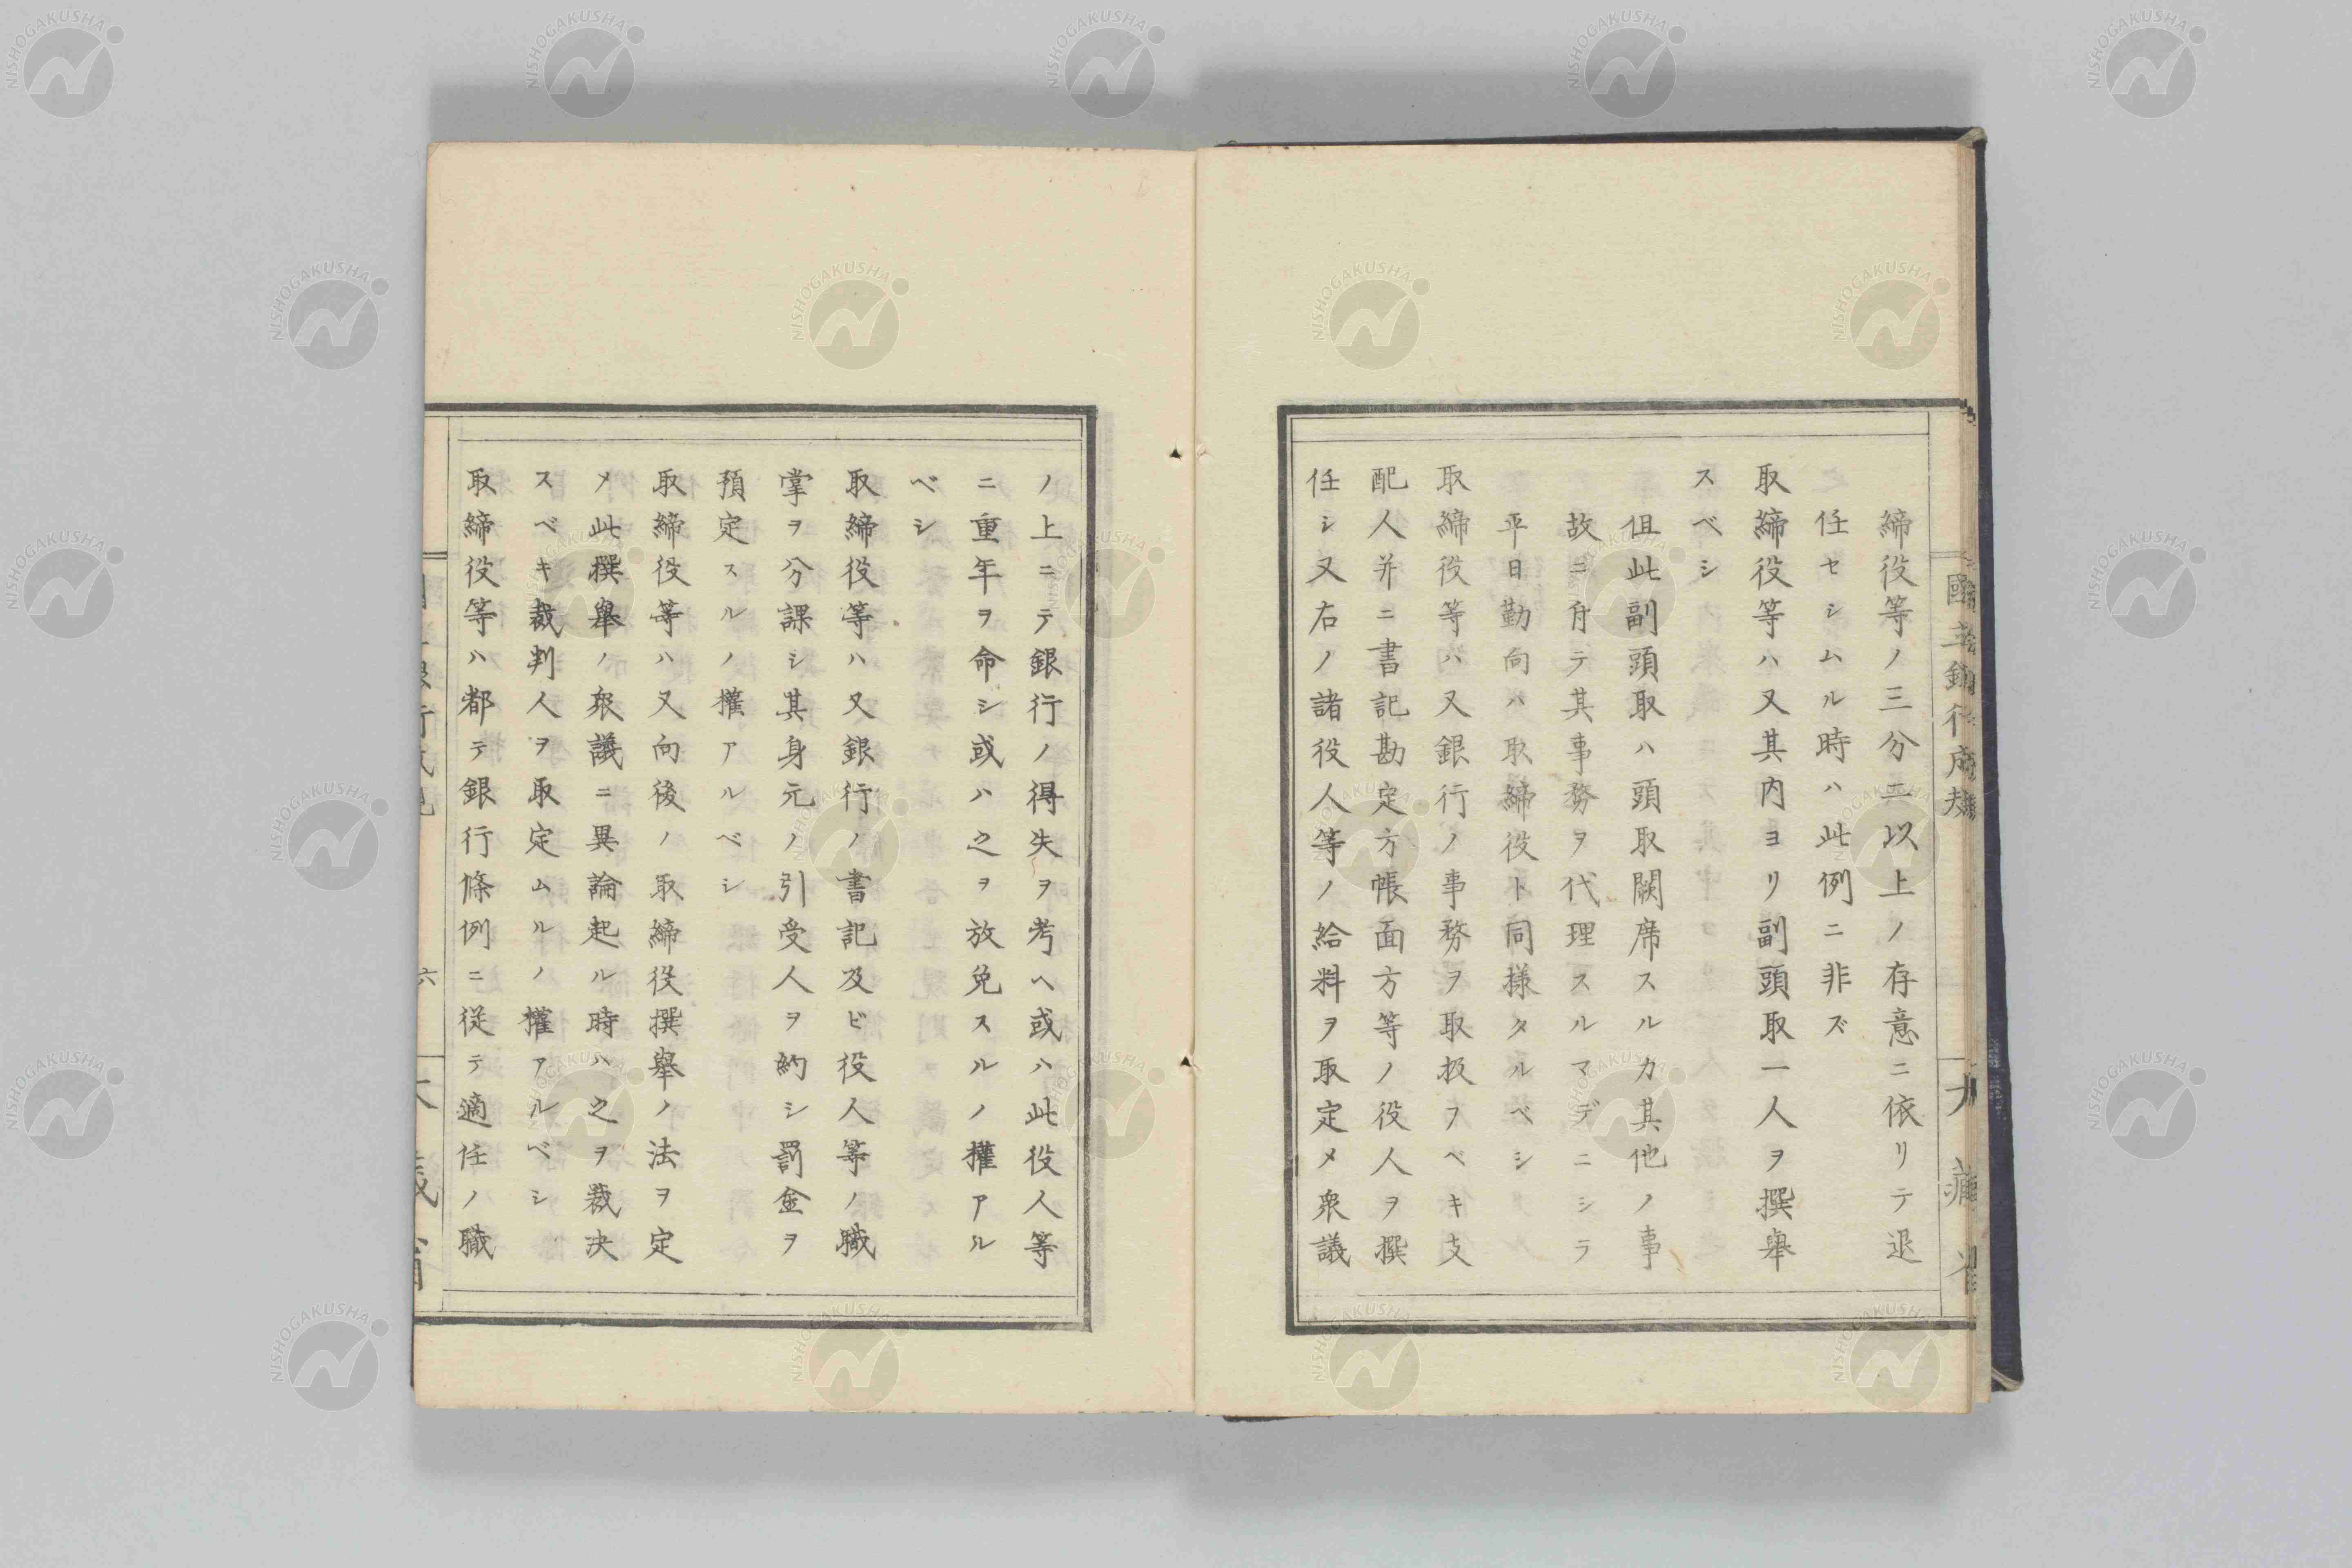 締役等ノ三分二以上ノ存意ニ依リテ退
任セシムル時ハ此例ニ非ズ
取締役等ハ又其内ヨリ副頭取一人ヲ撰舉
スベシ
伹此副頭取ハ頭取闕席スルカ其他ノ事
故ニ付テ其事務ヲ代理スルマデニシテ
平日勤向ハ取締役ト同様タルベシ
取締役等ハ又銀行ノ事務ヲ取扱フベキ支
配人并ニ書記勘定方帳面方等ノ役人ヲ撰
任シ又右ノ諸役人等ノ給料ヲ取定メ衆議
ノ上ニテ銀行ノ得失ヲ考ヘ或ハ此役人等
ニ重年ヲ命シ或ハ之ヲ放免スルノ權アル
ベシ
取締役等ハ又銀行ノ書記及ビ役人等ノ職
掌ヲ分課シ其身元ノ引受人ヲ約シ罰金ヲ
預定スルノ權アルベシ
取締役等ハ又向後ノ取締役撰舉ノ法ヲ定
メ此撰舉ノ衆議ニ異論起ル時ハ之ヲ裁決
スベキ裁判人ヲ取定ムルノ權アルベシ
取締役等ハ都テ銀行條例ニ従テ適任ノ職
六
NISHOGAKUSHA